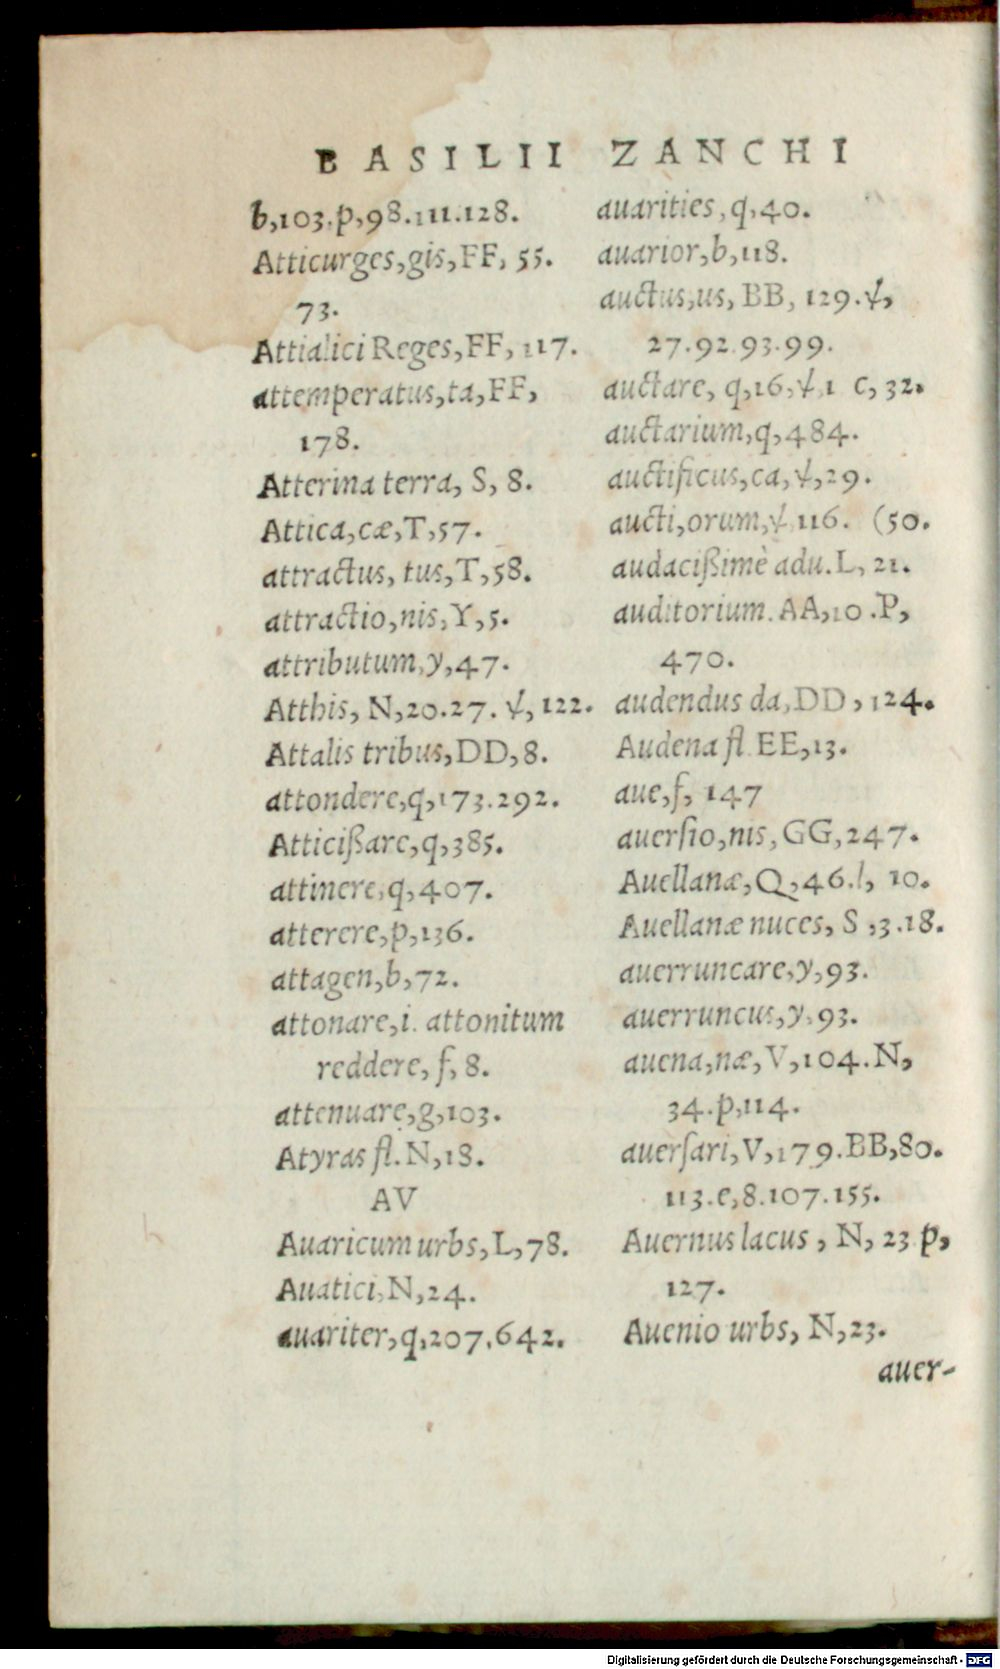 BASILII ZANCHI
b,103.p,98.111.128.
Atticurges,gis,FF, 55.
73.
Attialici Reges,FF, 117.
attemperatus,ta,FF,
178.
Atterina terra, S, 8.
Attica,cæ,T,57.
attractus, tus,T,58.
attractio,nis,Y,5.
attributum,y,47.
Atthis, N,20.27. ψ, 122.
Attalis tribus,DD,8.
attondere,q,173.292.
Atticißare,q,385.
attinere,q,407.
atterere,p,136.
attagen,b,72.
attonare,i. attonitum
reddere, f, 8.
attenuare,g,103.
Atyras fl.N,18.
AV
Auaricum urbs,L,78.
Auatici,N,24.
auariter,q,207.642.
auarities,q,40.
auarior,b,118.
auctus,us, BB, 129.ψ,
27.92.93.99.
auctare, q,16,ψ,1 c, 32.
auctarium,q,484.
auctificus,ca,ψ,29.
aucti,orum,ψ,116. (50.
audacißimè adu.L, 21.
auditorium.AA,10.P,
470.
audendus da,DD, 124.
Audena fl.EE,13.
aue,f, 147
auerſio,nis,GG,247.
Auellanæ,Q,46.l, 10.
Auellanæ nuces, S ,3.18.
auerruncare,y,93.
auerruncus,y,93.
auena,næ,V,104.N,
34.p,114.
auerſari,V,179.BB,80.
113.e,8.107.155.
Auernus lacus, N, 23 p,
127.
Auenio urbs, N,23.
auer-
Digitalisierung gefördert durch die Deutsche Forschungsgemeinschaft - DFG